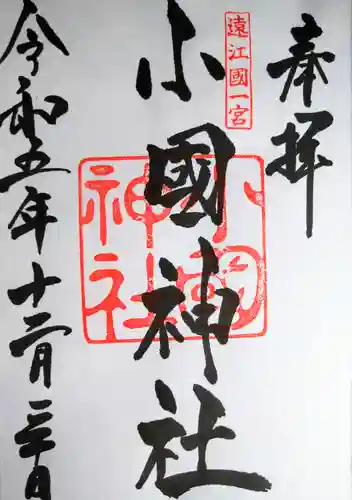 奉拝
遠江國一宮
小國神社
小國神社
令和五年十二月三十日